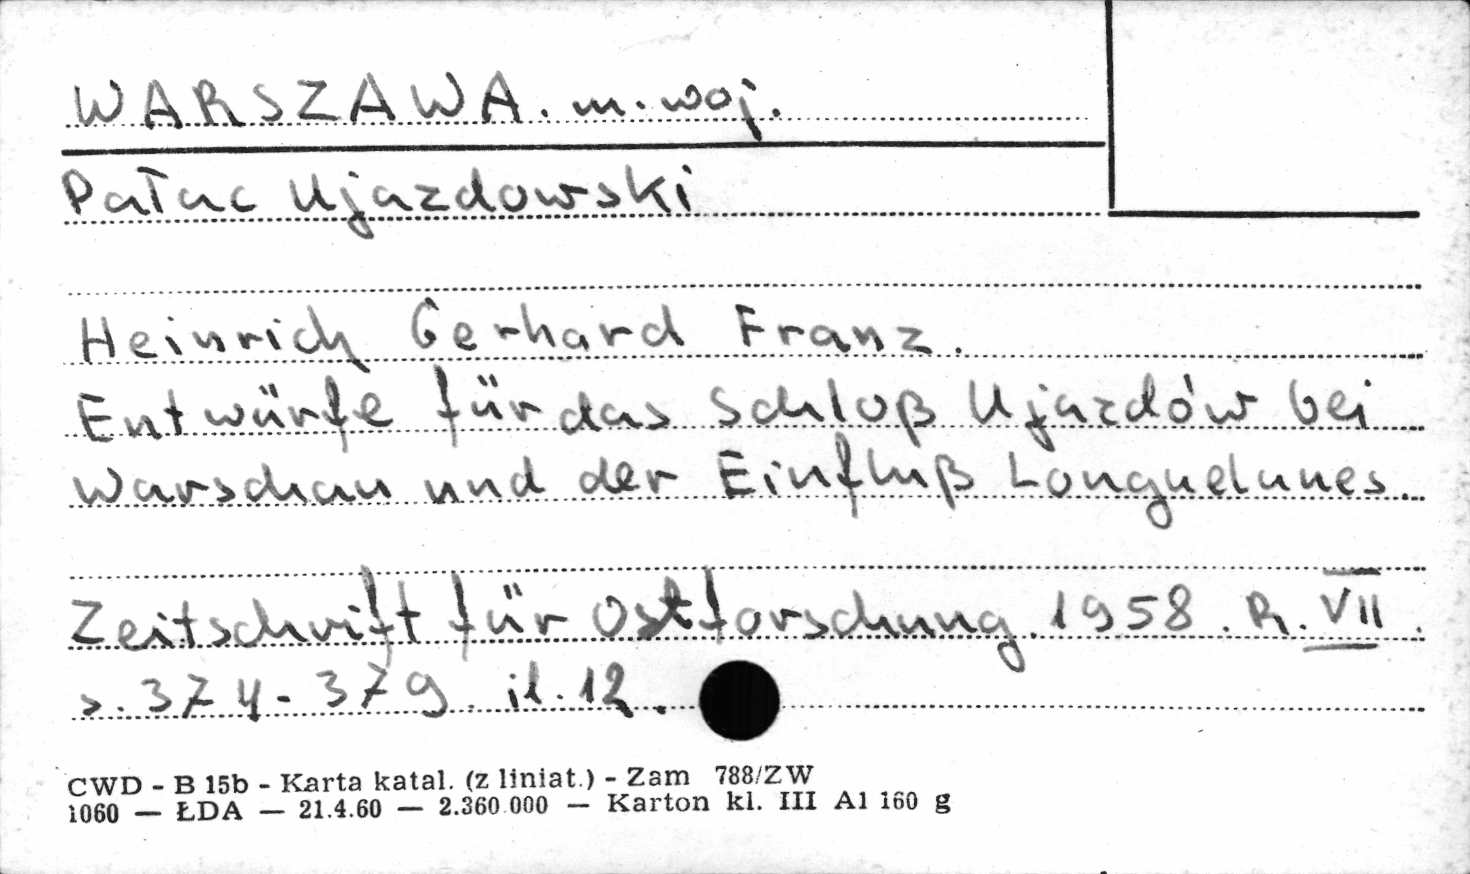 WARSZAWA. m. woj.
Pałac Ujazdowski
Heinrich Gerhard Franz.
Entwürfe für das Schloß Ujazdów bei
Warschau und der Einfluß Longuelunes.
Zeitschrift für Ostforschung. 1958. R. VII.
s. 374-379. il. 12.
CWD - B 15b - Karta katal. (z liniat.) - Zam 788/ZW
1060 — ŁDA — 21.4.60 — 2.360.000 — Karton kl. III A1 160 g